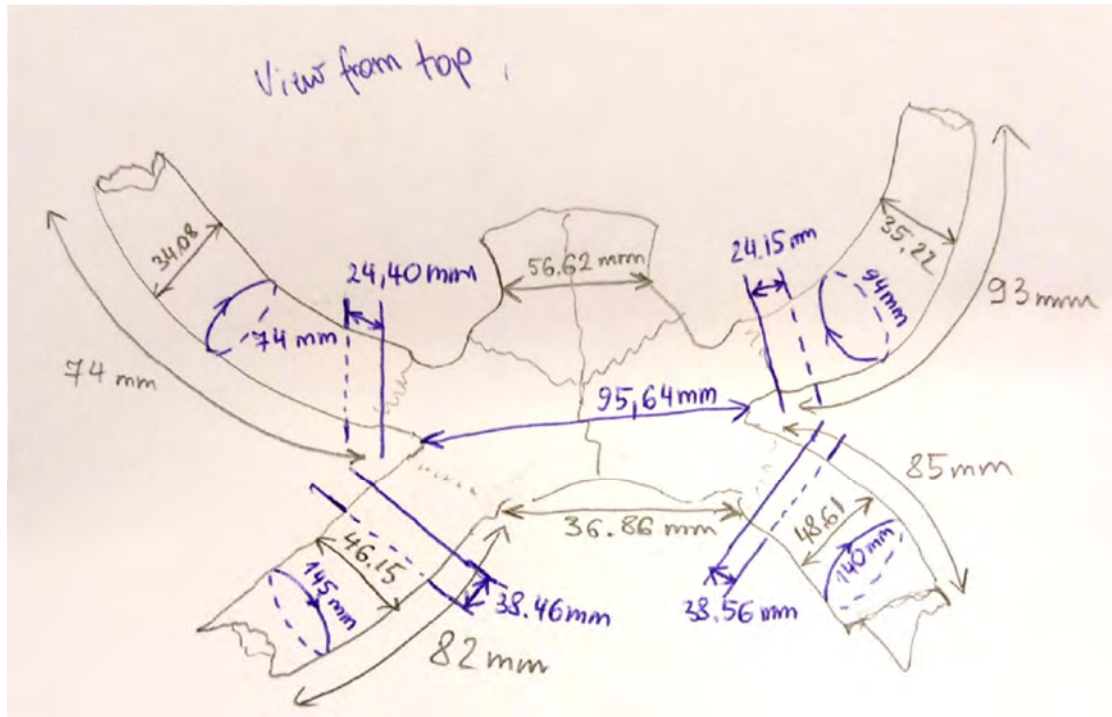 View from top,
34.08
24,40mm
56.62mm
24.15mm
35,22
74mm
94mm
93mm
74mm
95,64mm
85mm
36.86mm
46.15
48.61
145mm
140mm
38.46mm
38.56mm
82mm